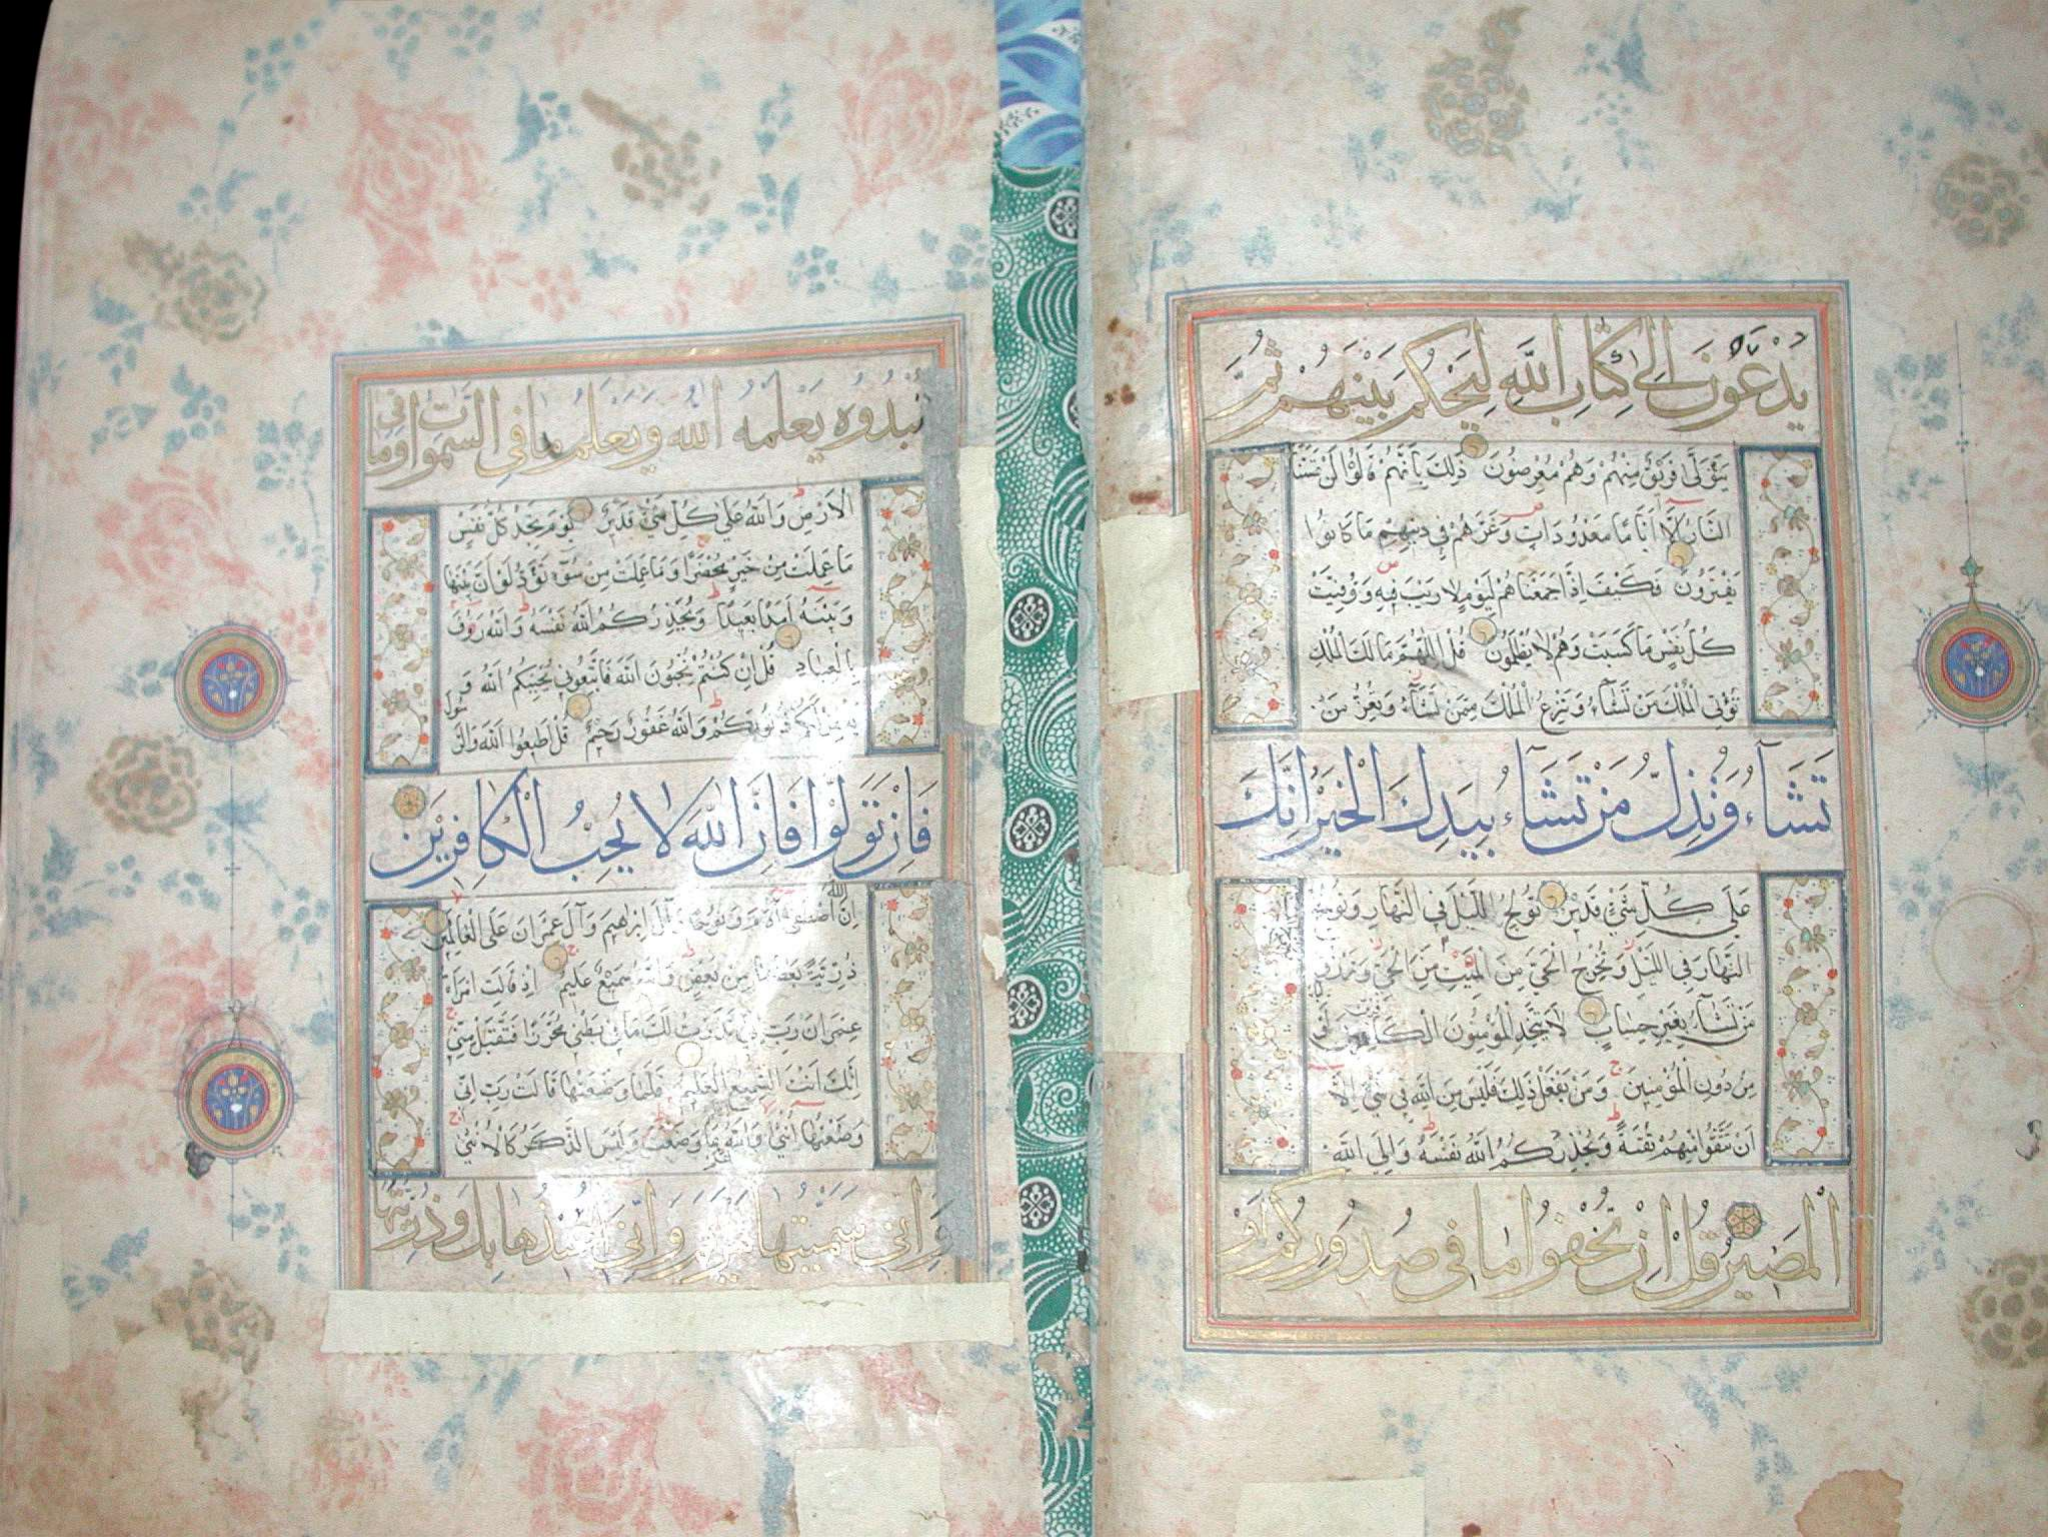 يُدْعَوْنَ إِلَىٰ كِتَابِ اللَّهِ لِيَحْكُمَ بَيْنَهُمْ ثُمَّ
يَتَوَلَّىٰ فَرِيقٌ مِنْهُمْ وَهُمْ مُعْرِضُونَ ذَٰلِكَ بِأَنَّهُمْ قَالُوا لَنْ تَمَسَّنَا
النَّارُ إِلَّا أَيَّامًا مَعْدُودَاتٍ وَغَرَّهُمْ فِي دِينِهِمْ مَا كَانُوا
يَفْتَرُونَ فَكَيْفَ إِذَا جَمَعْنَاهُمْ لِيَوْمٍ لَا رَيْبَ فِيهِ وَوُفِّيَتْ
كُلُّ نَفْسٍ مَا كَسَبَتْ وَهُمْ لَا يُظْلَمُونَ قُلِ اللَّهُمَّ مَالِكَ الْمُلْكِ
تُؤْتِي الْمُلْكَ مَنْ تَشَاءُ وَتَنْزِعُ الْمُلْكَ مِمَّنْ تَشَاءُ وَتُعِزُّ مَنْ
تَشَاءُ وَتُذِلُّ مَنْ تَشَاءُ بِيَدِكَ الْخَيْرُ إِنَّكَ
عَلَىٰ كُلِّ شَيْءٍ قَدِيرٌ تُولِجُ اللَّيْلَ فِي النَّهَارِ وَتُولِجُ
النَّهَارَ فِي اللَّيْلِ وَتُخْرِجُ الْحَيَّ مِنَ الْمَيِّتِ مِنَ الْحَيِّ وَتَرْزُقُ
مَنْ تَشَاءُ بِغَيْرِ حِسَابٍ لَا يَتَّخِذِ الْمُؤْمِنُونَ الْكَافِرِينَ
مِنْ دُونِ الْمُؤْمِنِينَ وَمَنْ يَفْعَلْ ذَٰلِكَ فَلَيْسَ مِنَ اللَّهِ فِي شَيْءٍ إِلَّا
أَنْ تَتَّقُوا مِنْهُمْ تُقَاةً وَيُحَذِّرُكُمُ اللَّهُ نَفْسَهُ وَإِلَى اللَّهِ
الْمَصِيرُ قُلْ إِنْ تُخْفُوا مَا فِي صُدُورِكُمْ أَوْ
تُبْدُوهُ يَعْلَمْهُ اللَّهُ وَيَعْلَمُ مَا فِي السَّمَوَاتِ وَمَا فِي
الْأَرْضِ وَاللَّهُ عَلَىٰ كُلِّ شَيْءٍ قَدِيرٌ يَوْمَ تَجِدُ كُلُّ نَفْسٍ
مَا عَمِلَتْ مِنْ خَيْرٍ مُحْضَرًا وَمَا عَمِلَتْ مِنْ سُوءٍ تَوَدُّ لَوْ أَنَّ بَيْنَهَا
وَبَيْنَهُ أَمَدًا بَعِيدًا وَيُحَذِّرُكُمُ اللَّهُ نَفْسَهُ وَاللَّهُ رَءُوفٌ
بِالْعِبَادِ قُلْ إِنْ كُنْتُمْ تُحِبُّونَ اللَّهَ فَاتَّبِعُونِي يُحْبِبْكُمُ اللَّهُ وَ
ذُنُوبَكُمْ وَاللَّهُ غَفُورٌ رَحِيمٌ قُلْ أَطِيعُوا اللَّهَ وَالرَّسُولَ
فَإِنْ تَوَلَّوْا فَإِنَّ اللَّهَ لَا يُحِبُّ الْكَافِرِينَ
إِنَّ اللَّهَ اصْطَفَىٰ آدَمَ وَنُوحًا وَآلَ إِبْرَاهِيمَ وَآلَ عِمْرَانَ عَلَى الْعَالَمِينَ
ذُرِّيَّةً بَعْضُهَا مِنْ بَعْضٍ وَاللَّهُ سَمِيعٌ عَلِيمٌ إِذْ قَالَتِ امْرَأَةُ
عِمْرَانَ رَبِّ إِنِّي نَذَرْتُ لَكَ مَا فِي بَطْنِي مُحَرَّرًا فَتَقَبَّلْ مِنِّي
إِنَّكَ أَنْتَ السَّمِيعُ الْعَلِيمُ فَلَمَّا وَضَعَتْهَا قَالَتْ رَبِّ إِنِّي
وَضَعْتُهَا أُنْثَىٰ وَاللَّهُ أَعْلَمُ بِمَا وَضَعَتْ وَلَيْسَ الذَّكَرُ كَالْأُنْثَىٰ
وَإِنِّي سَمَّيْتُهَا مَرْيَمَ وَإِنِّي أُعِيذُهَا بِكَ وَذُرِّيَّتَهَا